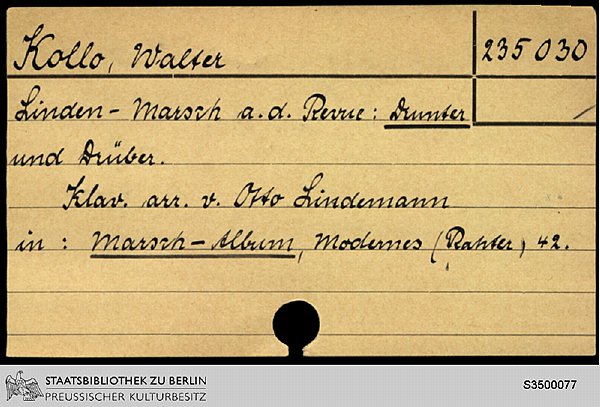 Kollo, Walter
235 030
Linden-Marsch a.d. Revue: Drunter
und Drüber.
Klav. arr. v. Otto Lindemann
in: Marsch-Album, Modernes (Rahter) 42.
STAATSBIBLIOTHEK ZU BERLIN
PREUSSISCHER KULTURBESITZ
S3500077